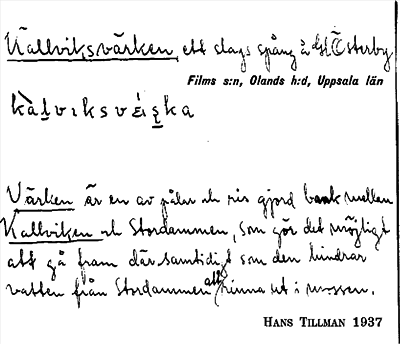 Kallviksvärken, ett slags spång å Öf. Österby
Films s:n, Olands h:d, Uppsala län
kàḷvıksvɛ́ıṣka
Värken är en av pålar och ris gjord bank mellan
Kallviken och Stordammen, som gör det möjligt
att gå fram där samtidigt som den hindrar
vatten från Stordammen att rinna ut i mossen.
HANS TILLMAN 1937